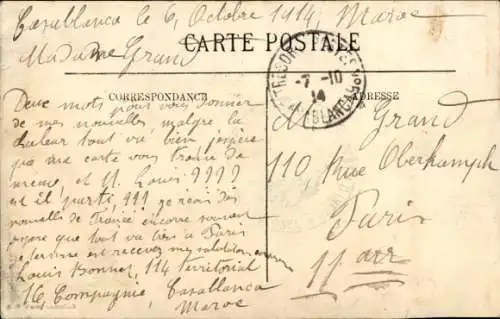 Casablanca le 6, Octobre 1914, Maroc
Madame Grand
CARTE POSTALE
CORRESPONDANCE
ADRESSE
TRESOR
7 -10
14
BLANCA
Deux mots pour vous donner
de mes nouvelles, malgré la
chaleur tout va bien j'espère
que ma carte vous trouve de
même, et M. Louis ????
est il parti, ??? je reçois des
nouvelles de France encore souvent
espère que tout va bien à Paris
je termine en recevez mes salutations
Louis Bonnet, 114 territorial
16 Compagnie, Casablanca
Maroc
M Grand
110, Rue Oberkampf
Paris
11 arr